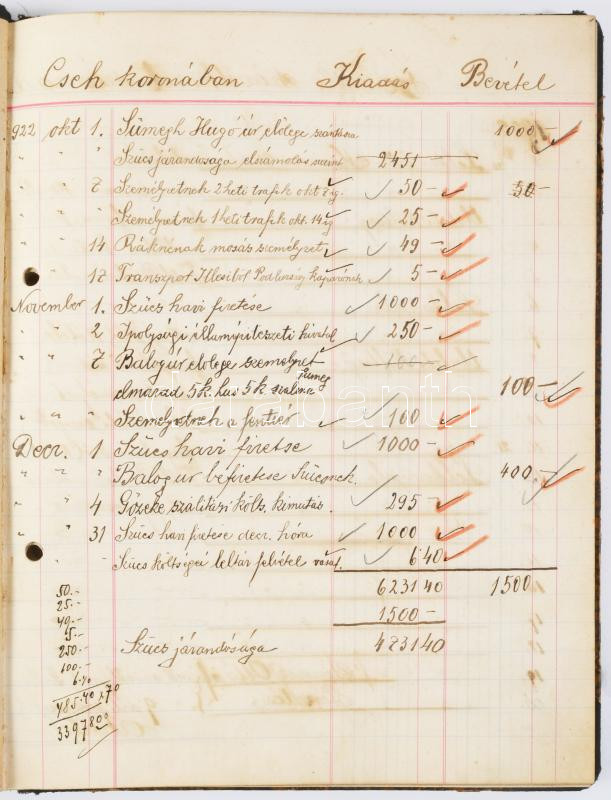 Cseh koronában Kiadás Bevétel
922 okt 1. Sümegh Hugó úr előlege 1000
" " Szücs járandósága elszámolás szerint 2451 —
" " 7 Személyzetnek 2 heti trafik okt 7 ig. 50 — 50 —
" " Személyzetnek 1 heti trafik okt. 14 ig 25 —
" " 14 Ráknénak mosás személyzet 49 —
" " 17 Transzport 5 —
November 1. Szücs havi fizetése 1000 —
" " 2 Ipolysági illamépitészeti hivatal 250 —
" " 7 Balog úr előlege személyzet 100 —
elmarad 5 k. hus 5 k. szalona 100 —
" " " Személyzetnek a fentiér 100 —
Decr. 1 Szücs havi fizetse 1000 —
" " " Balog úr befizetése Szücsnek. 400. —
" " 4 Gőzeke szálitási költs. kimutás 295 —
" " 31 Szücs havi fizetése decr. hóra 1000 —
" " Szücs költségei leltár felvétel 6 40
6231 40 1500
1500 —
Szücs járandósága 4731 40
50.-
25.-
49.-
5.-
250.-
100.-
6.40
485.40 x 70
33978 00
darabanth